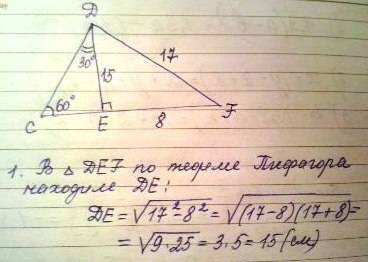 D
30°
15
17
60°
C
E
8
F
1. В △ DEF по теореме Пифагора
находиле DE:
DE = √(17² - 8²) = √((17-8)(17+8)) =
= √(9·25) = 3·5 = 15 (см)